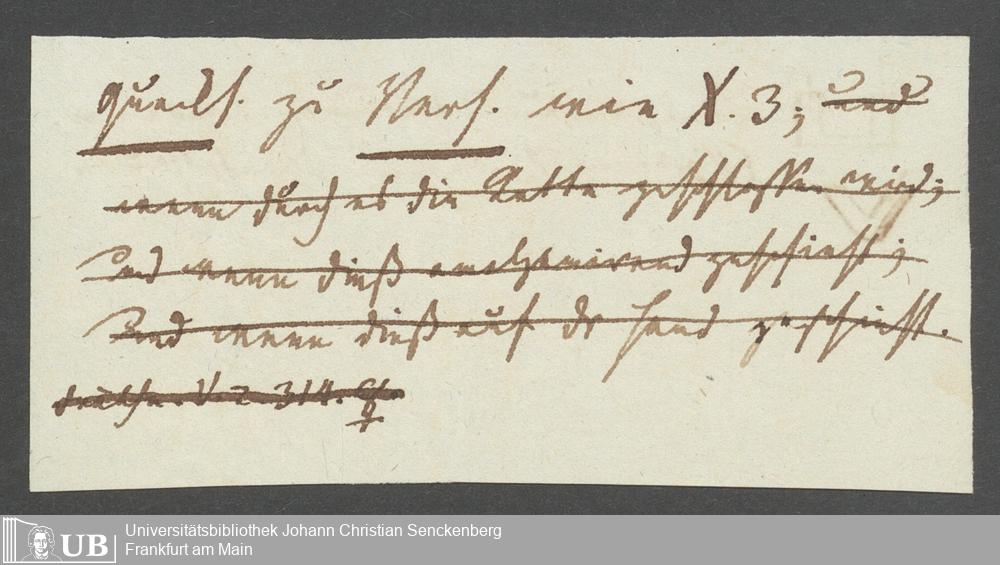 Quecks. zu Vers. wie X. 3; und
wenn durch es die Kette geschlossen wird;
und wenn dieß amalgamirend geschieht;
und wenn dieß auf dr Hand geschieht.
V. 2. 314.
UB
Universitätsbibliothek Johann Christian Senckenberg
Frankfurt am Main